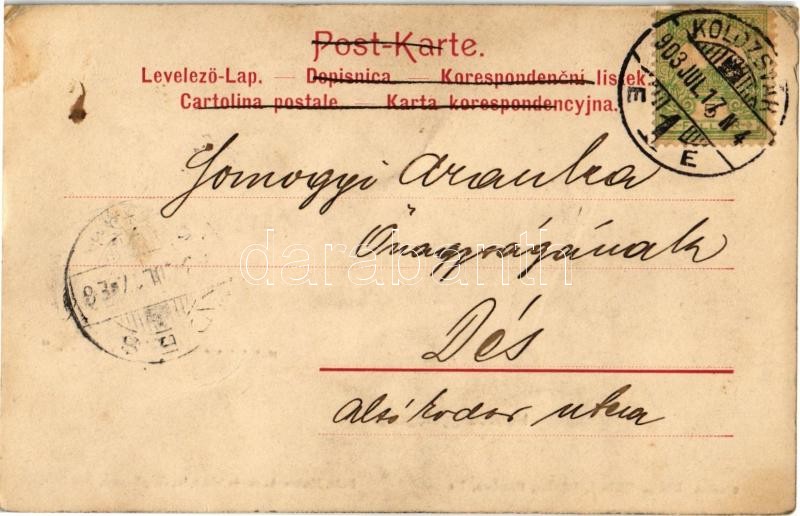 Post-Karte.
Levelező-Lap. — Dopisnica. — Korespondenční lístek.
Cartolina postale. — Karta korespondencyjna.
KOLOZSVÁR
903 JUL. 17 N 4
E E
Somogyi Aranka
Őnagyságának
darabanth
Dés
Alsó kodor utca